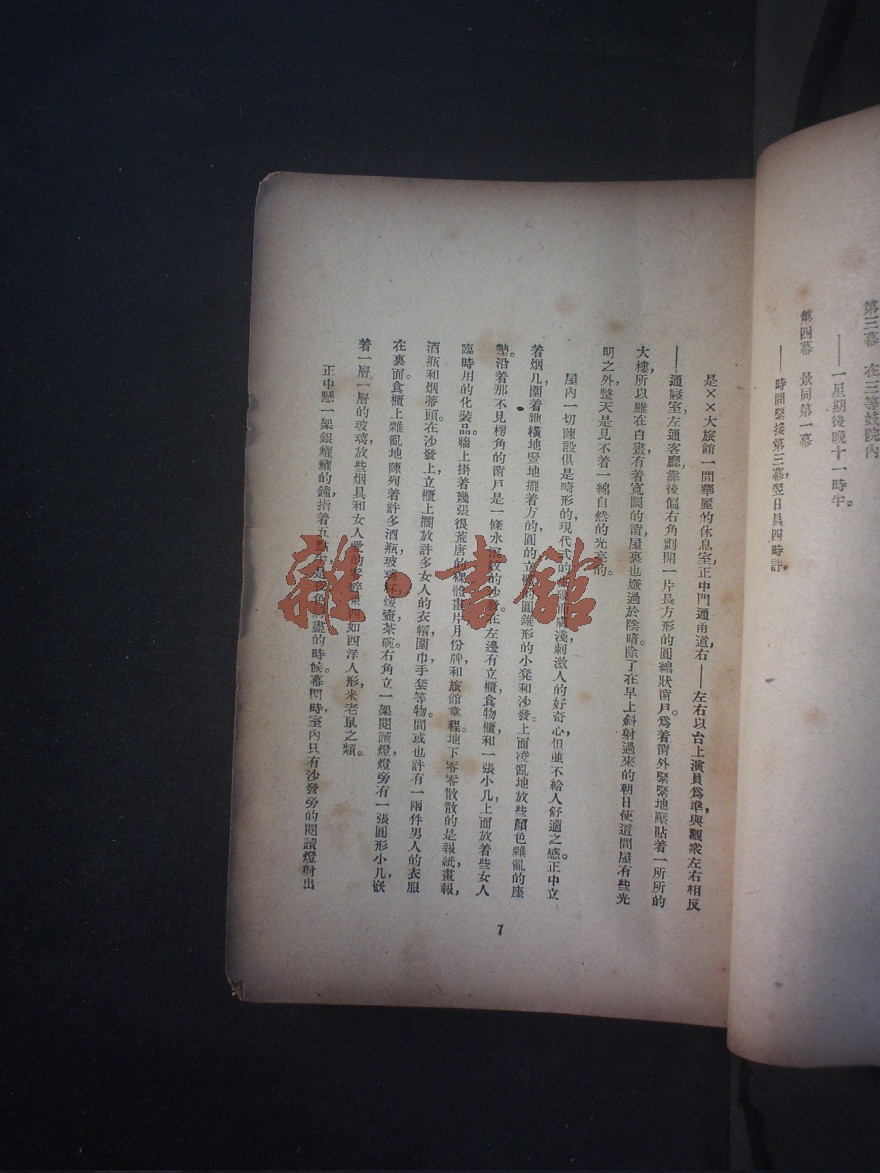 第三幕 在三等妓院內
——一星期後晚十一時半。
第四幕 景同第一幕
——時間緊接第三幕，翌日晨四時許
是××大旅館一間華麗的休息室，正中門通甬道，右——左右以台上演員爲準，與觀衆左右相反
——通寢室，左通客廳，靠後偏右角劃開一片長方形的圓線狀窗戶。爲着窗外緊緊地壓貼着一所所的
大樓，所以雖在白晝，有着寬闊的窗，屋裏也嫌過於陰暗。除了在早上斜射過來的朝日使這間屋有些光
明之外，整天是見不着一線自然的光亮的。
屋內一切陳設俱是畸形的，現代式的，而膚淺，刺激人的好奇心，但並不給人舒適之感。正中立
着烟几，圍着牠橫地豎地擺着方的，圓的，立體的，圓錐形的小凳和沙發。上面凌亂地放些顏色雜亂的座
墊。沿着那不見楞角的窗戶是一條水波紋的沙發。在左邊有立櫃，食物櫃，和一張小几，上面放着些女人
臨時用的化裝品。牆上掛着幾張很荒唐的裸體畫片，月份牌，和旅館章程。地下零零散散的是報紙，畫報，
酒瓶和烟蒂頭。在沙發上，立櫃上擱放許多女人的衣帽，圍巾，手套等物。間或也許有一兩件男人的衣服
在裏面。食櫃上雜亂地陳列着許多酒瓶，玻璃杯，暖壺，茶碗。右角立一架閱讀燈，燈旁有一張圓形小几，嵌
着一層一層的玻璃，放些烟具和女人愛的零碎東西，如西洋人形，米老鼠之類。
正中懸一架銀熠熠的鐘，指着五點半，是夜色將盡的時候。幕開時，室內只有沙發旁的閱讀燈射出
7
雜·書館